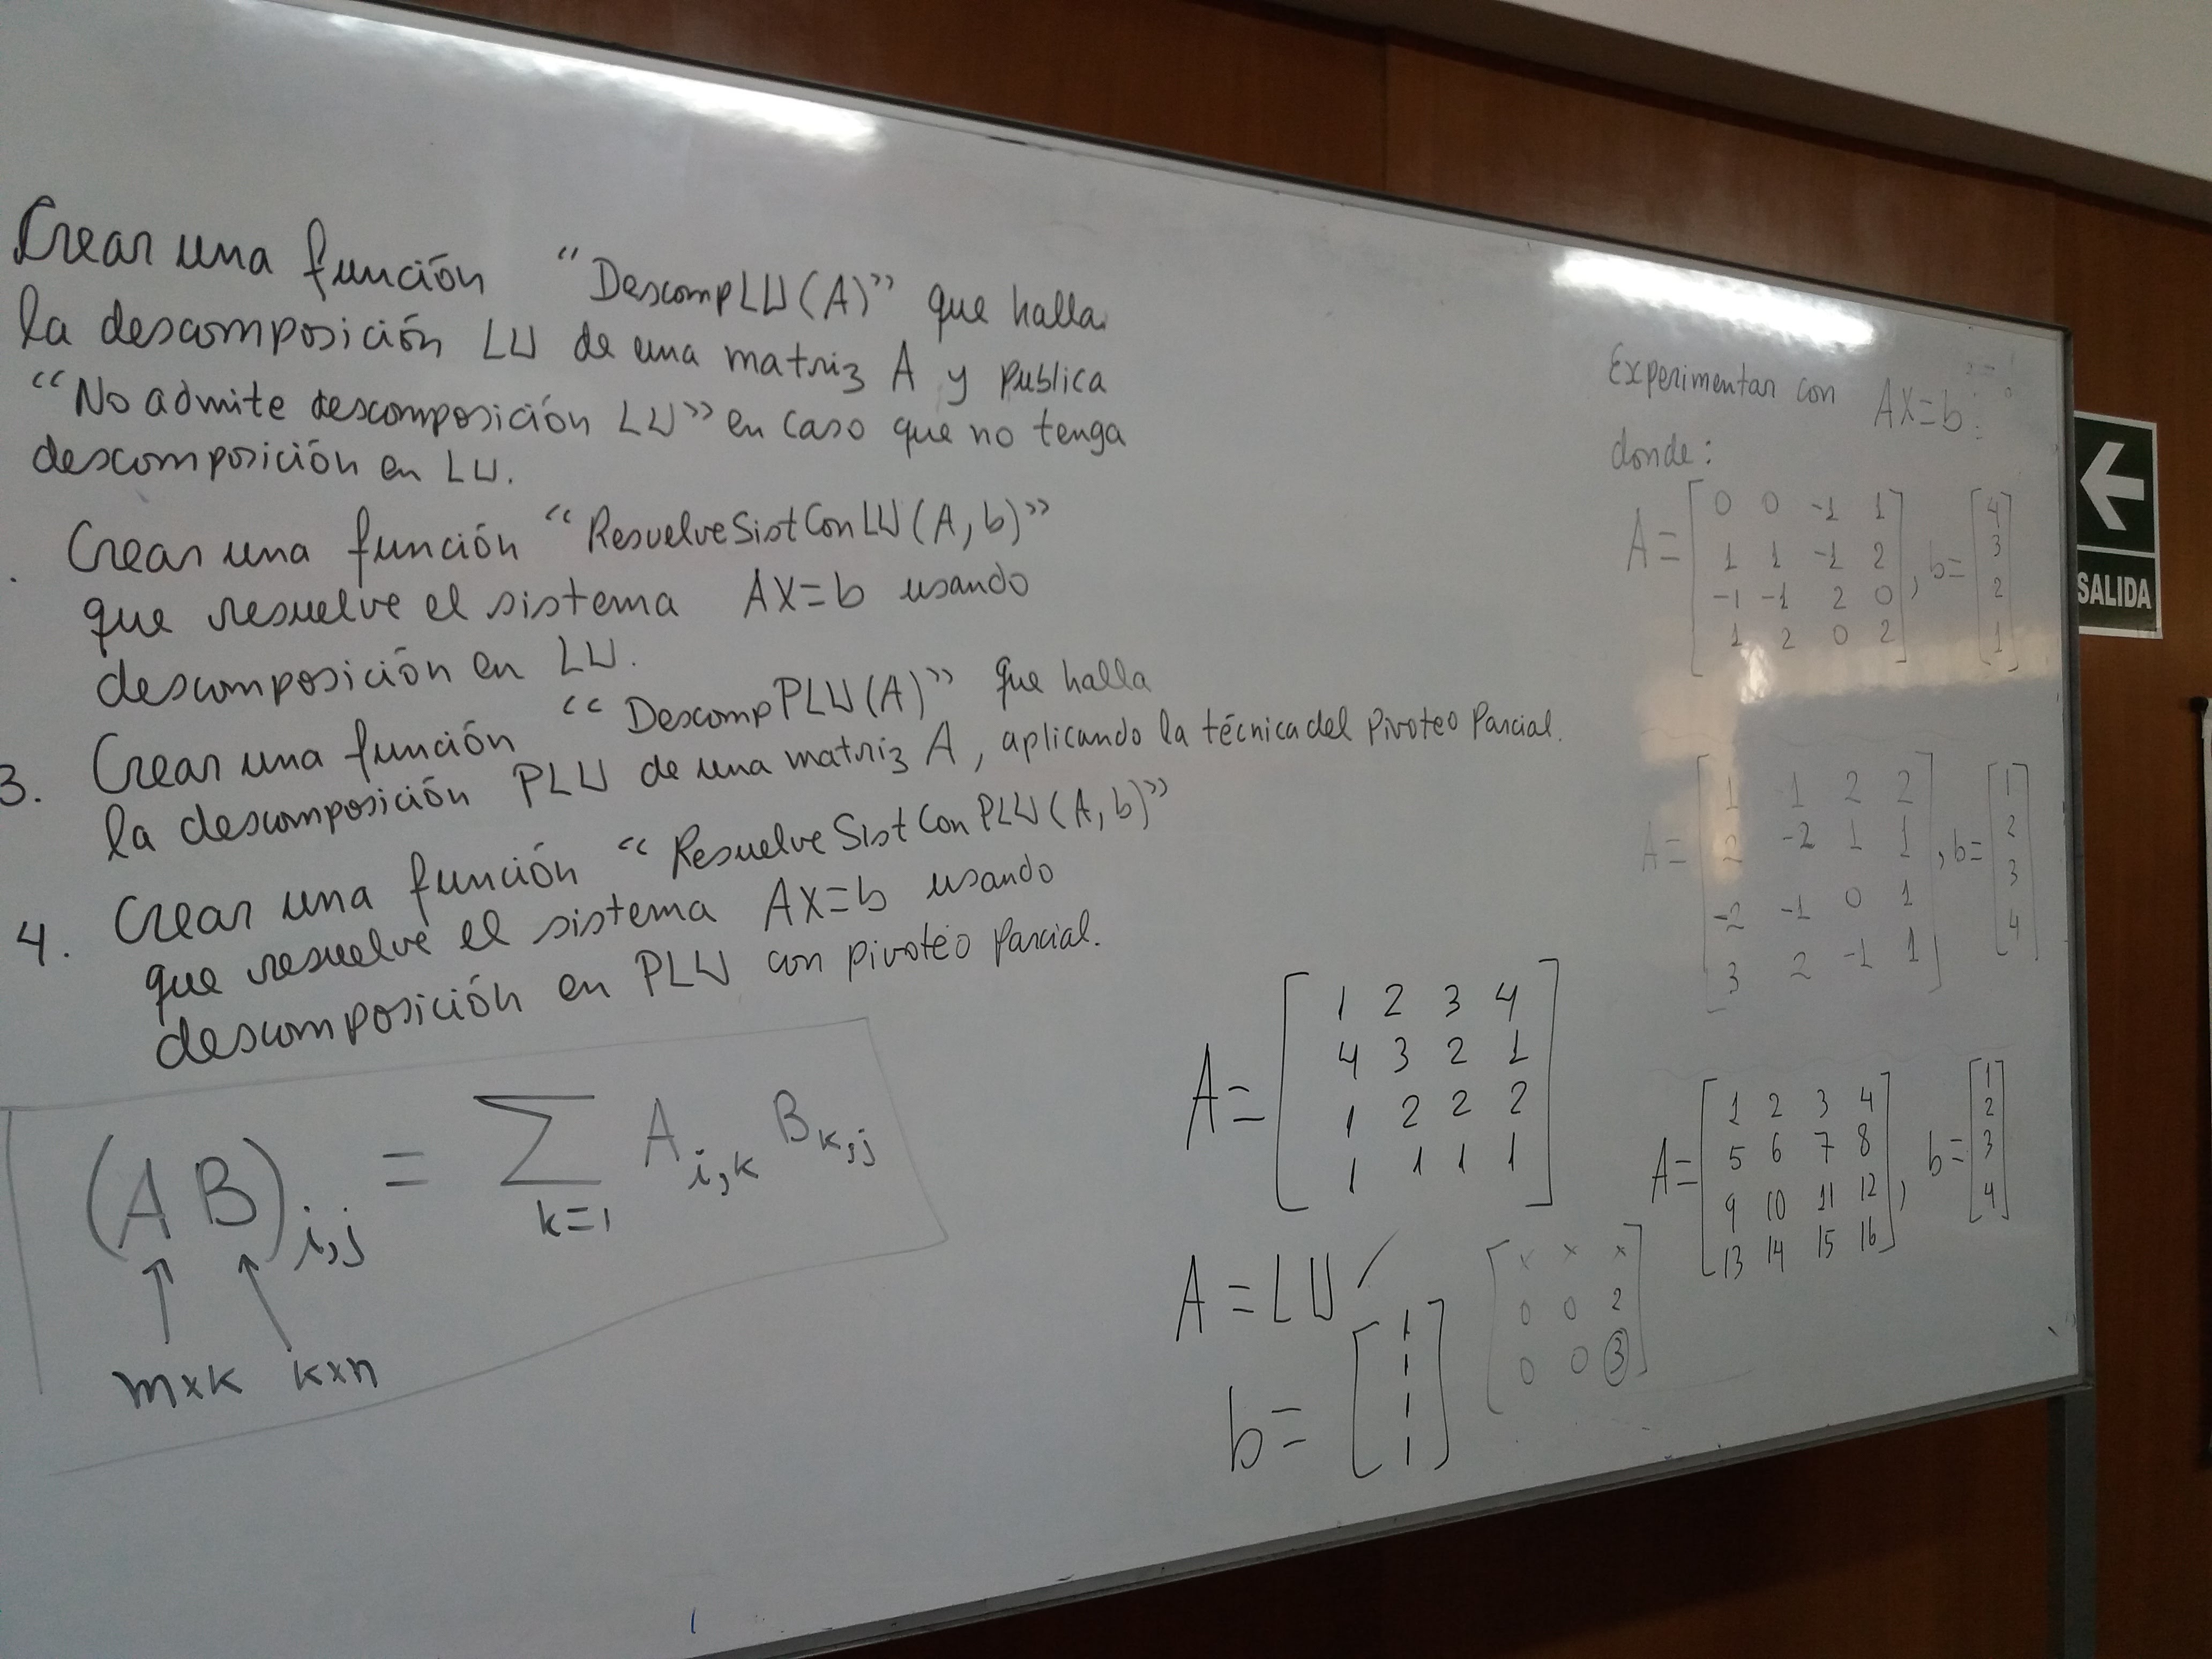 Crear una función "DescompLU(A)" que halla
la descomposición LU de una matriz A y publica
"No admite descomposición LU" en caso que no tenga
descomposición en LU.
. Crear una función "ResuelveSistConLU(A, b)"
que resuelve el sistema AX=b usando
descomposición en LU.
3. Crear una función "DescompPLU(A)" que halla
la descomposición PLU de una matriz A, aplicando la técnica del Pivoteo Parcial.
4. Crear una función "ResuelveSistConPLU(A, b)"
que resuelve el sistema AX=b usando
descomposición en PLU con pivoteo Parcial.
(AB)i,j = Σ Ai,k Bk,j
k=1
m×k k×n
A=
1 2 3 4
4 3 2 1
1 2 2 2
1 1 1 1
A=LU
b=
1
1
1
1
x x x
0 0 2
0 0 3
Experimentar con AX=b:
donde:
A= , b=
0 0 -1 1 4
1 1 -1 2 3
-1 -1 2 0 2
1 2 0 2 1
A= , b=
1 1 2 2 1
2 -2 1 1 2
-2 -1 0 1 3
3 2 -1 1 4
A= , b=
1 2 3 4 1
5 6 7 8 2
9 10 11 12 3
13 14 15 16 4
SALIDA